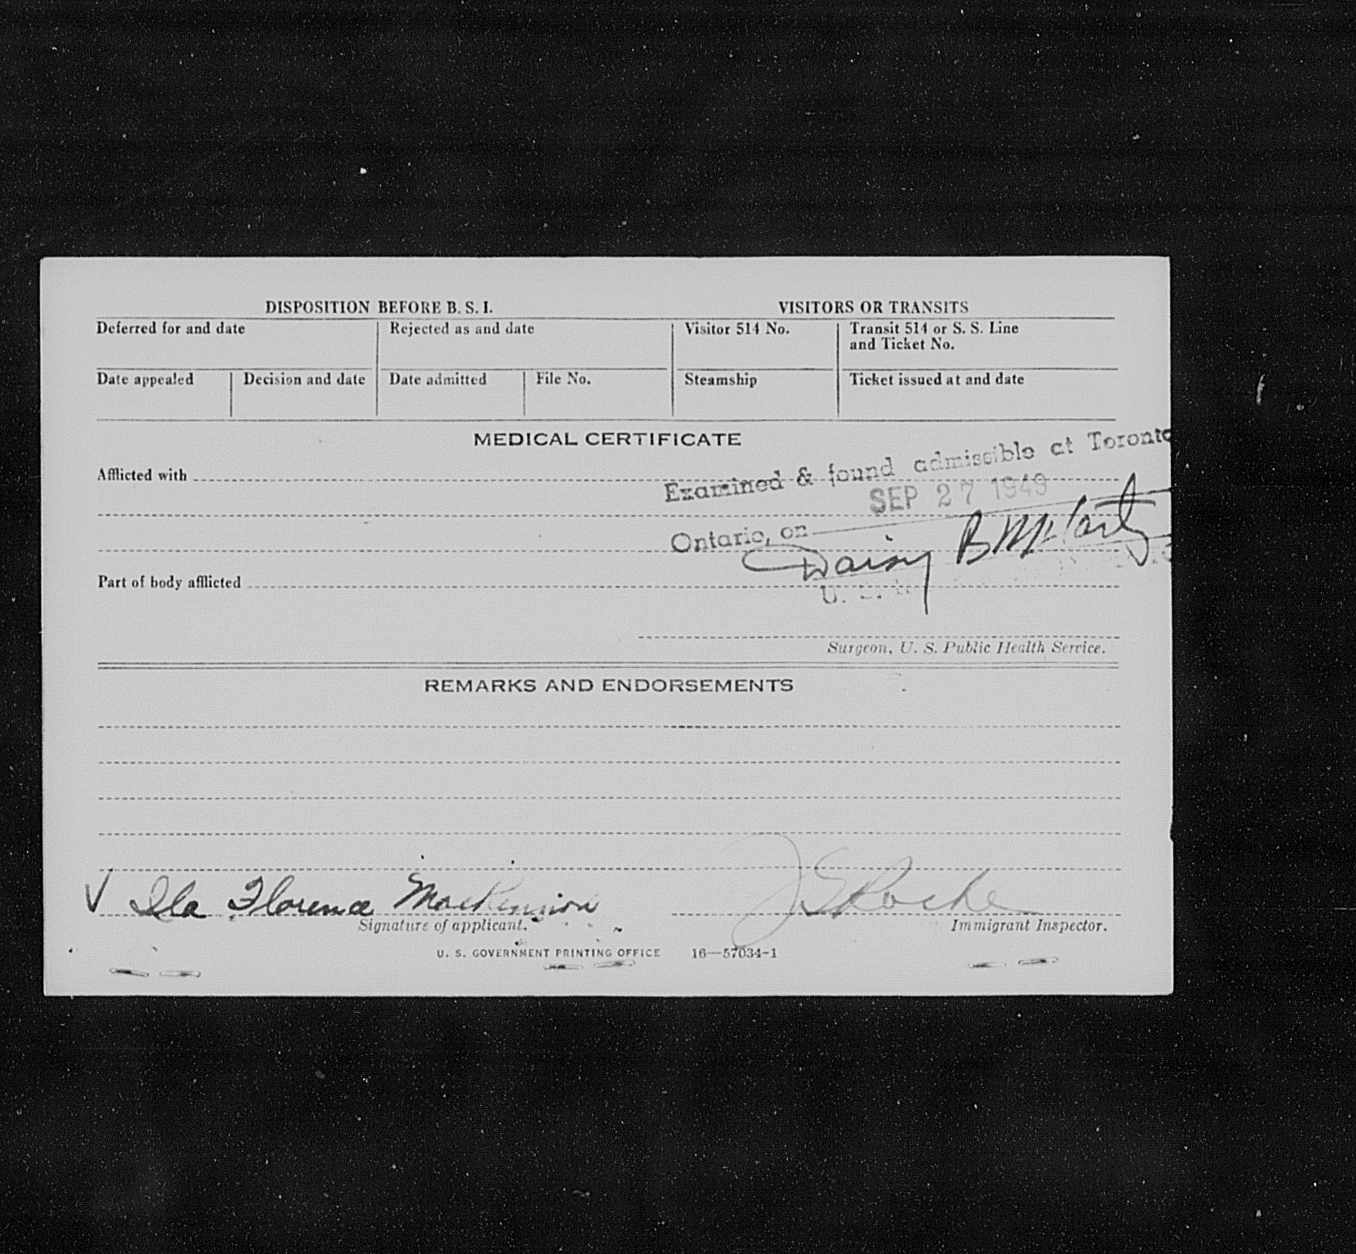 DISPOSITION BEFORE B. S. I. VISITORS OR TRANSITS
Deferred for and date Rejected as and date Visitor 514 No. Transit 514 or S. S. Line
and Ticket No.
Date appealed Decision and date Date admitted File No. Steamship Ticket issued at and date
MEDICAL CERTIFICATE
Afflicted with
Examined & found admissible at Toronto
SEP 27 1949
Ontario, on
Daisy B McCarty
Part of body afflicted
U. S.
Surgeon, U. S. Public Health Service.
REMARKS AND ENDORSEMENTS
Ila Florence MacKinnon J S Roche
Signature of applicant. Immigrant Inspector.
U. S. GOVERNMENT PRINTING OFFICE 16—57034-1